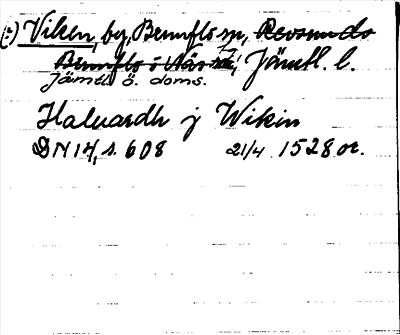 (:) Viken, by, Brunflo sn, Revsunds
Brunflo o Näs sn, Jämtl. l.
Jämtl. ö. doms.
Haluardh j Wikin
DN 14, s. 608 21/4 1528 or.